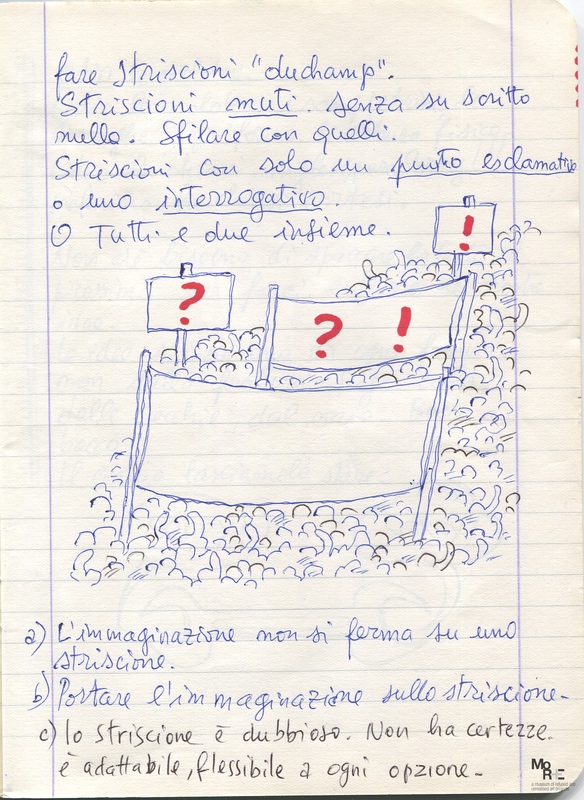 fare striscioni "duchamp".
Striscioni muti. Senza su scritto
nulla. Sfilare con quelli.
Striscioni con solo un punto esclamativo
o uno interrogativo.
O Tutti e due insieme.
!
?
? !
a) L'immaginazione non si ferma su uno
striscione.
b) Portare l'immaginazione sullo striscione-
c) lo striscione è dubbioso. Non ha certezze.
è adattabile, flessibile a ogni opzione-
MoRE
a museum of refused and
unrealised art projects